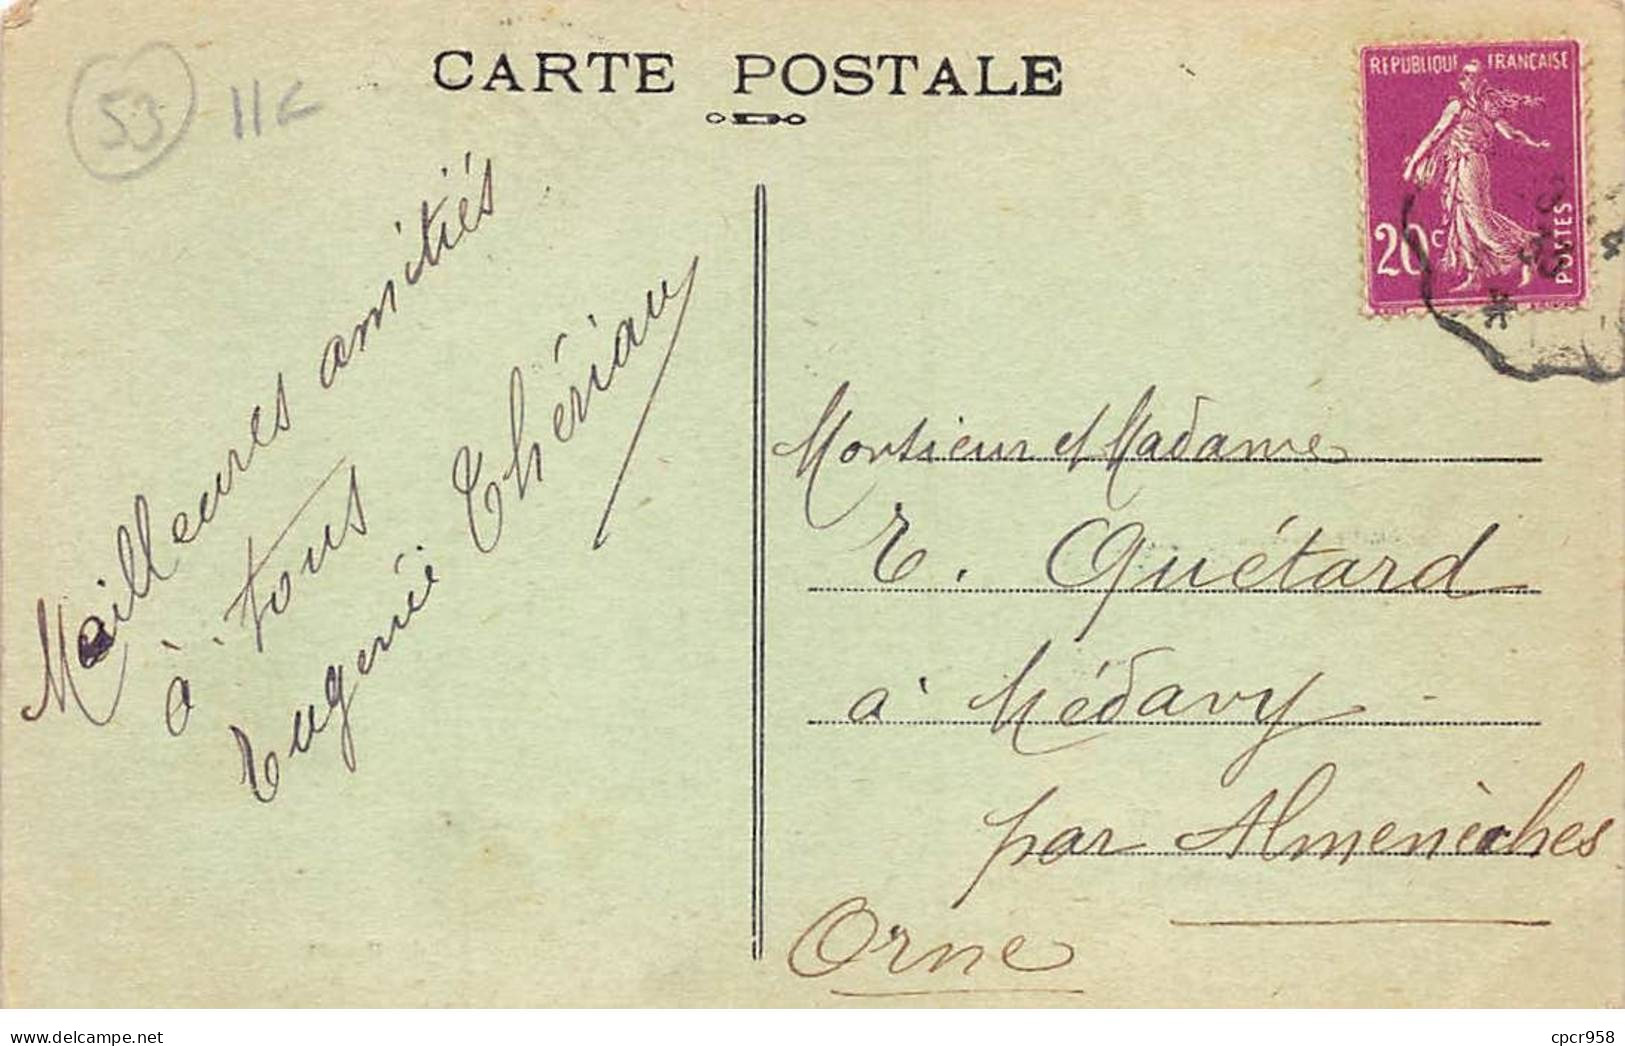 CARTE POSTALE
53
11c
REPUBLIQUE FRANÇAISE
20c
POSTES
Meilleures amitiés
à tous
Eugénie Thériau
Monsieur et Madame
E. Quétard
à Médavy
par Almenèches
Orne
www.delcampe.net
cpcr958